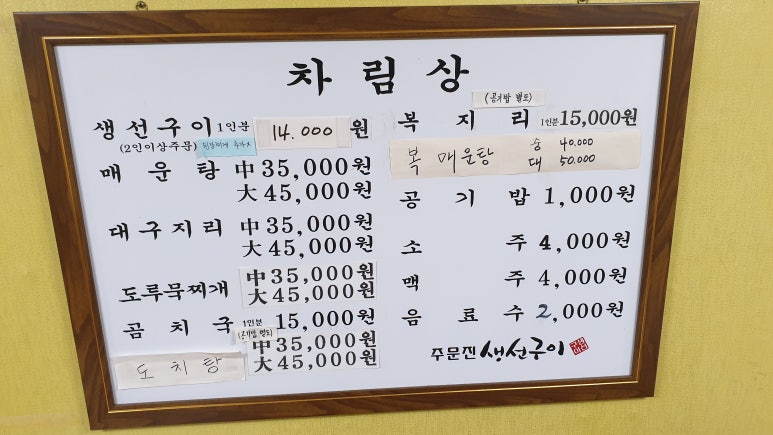 차림상
생선구이 1인분 14.000 원
(2인이상주문)
매운탕 中 35,000원
大 45,000원
대구지리 中 35,000원
大 45,000원
도루묵찌개 中 35,000원
大 45,000원
곰치국 1인분 15,000원
(공기밥 별도)
도치탕 中 35,000원
大 45,000원
(공기밥 별도)
복지리 1인분 15,000원
복 매운탕 중 40.000
대 50.000
공기밥 1,000원
소주 4,000원
맥주 4,000원
음료수 2,000원
주문진 생선구이